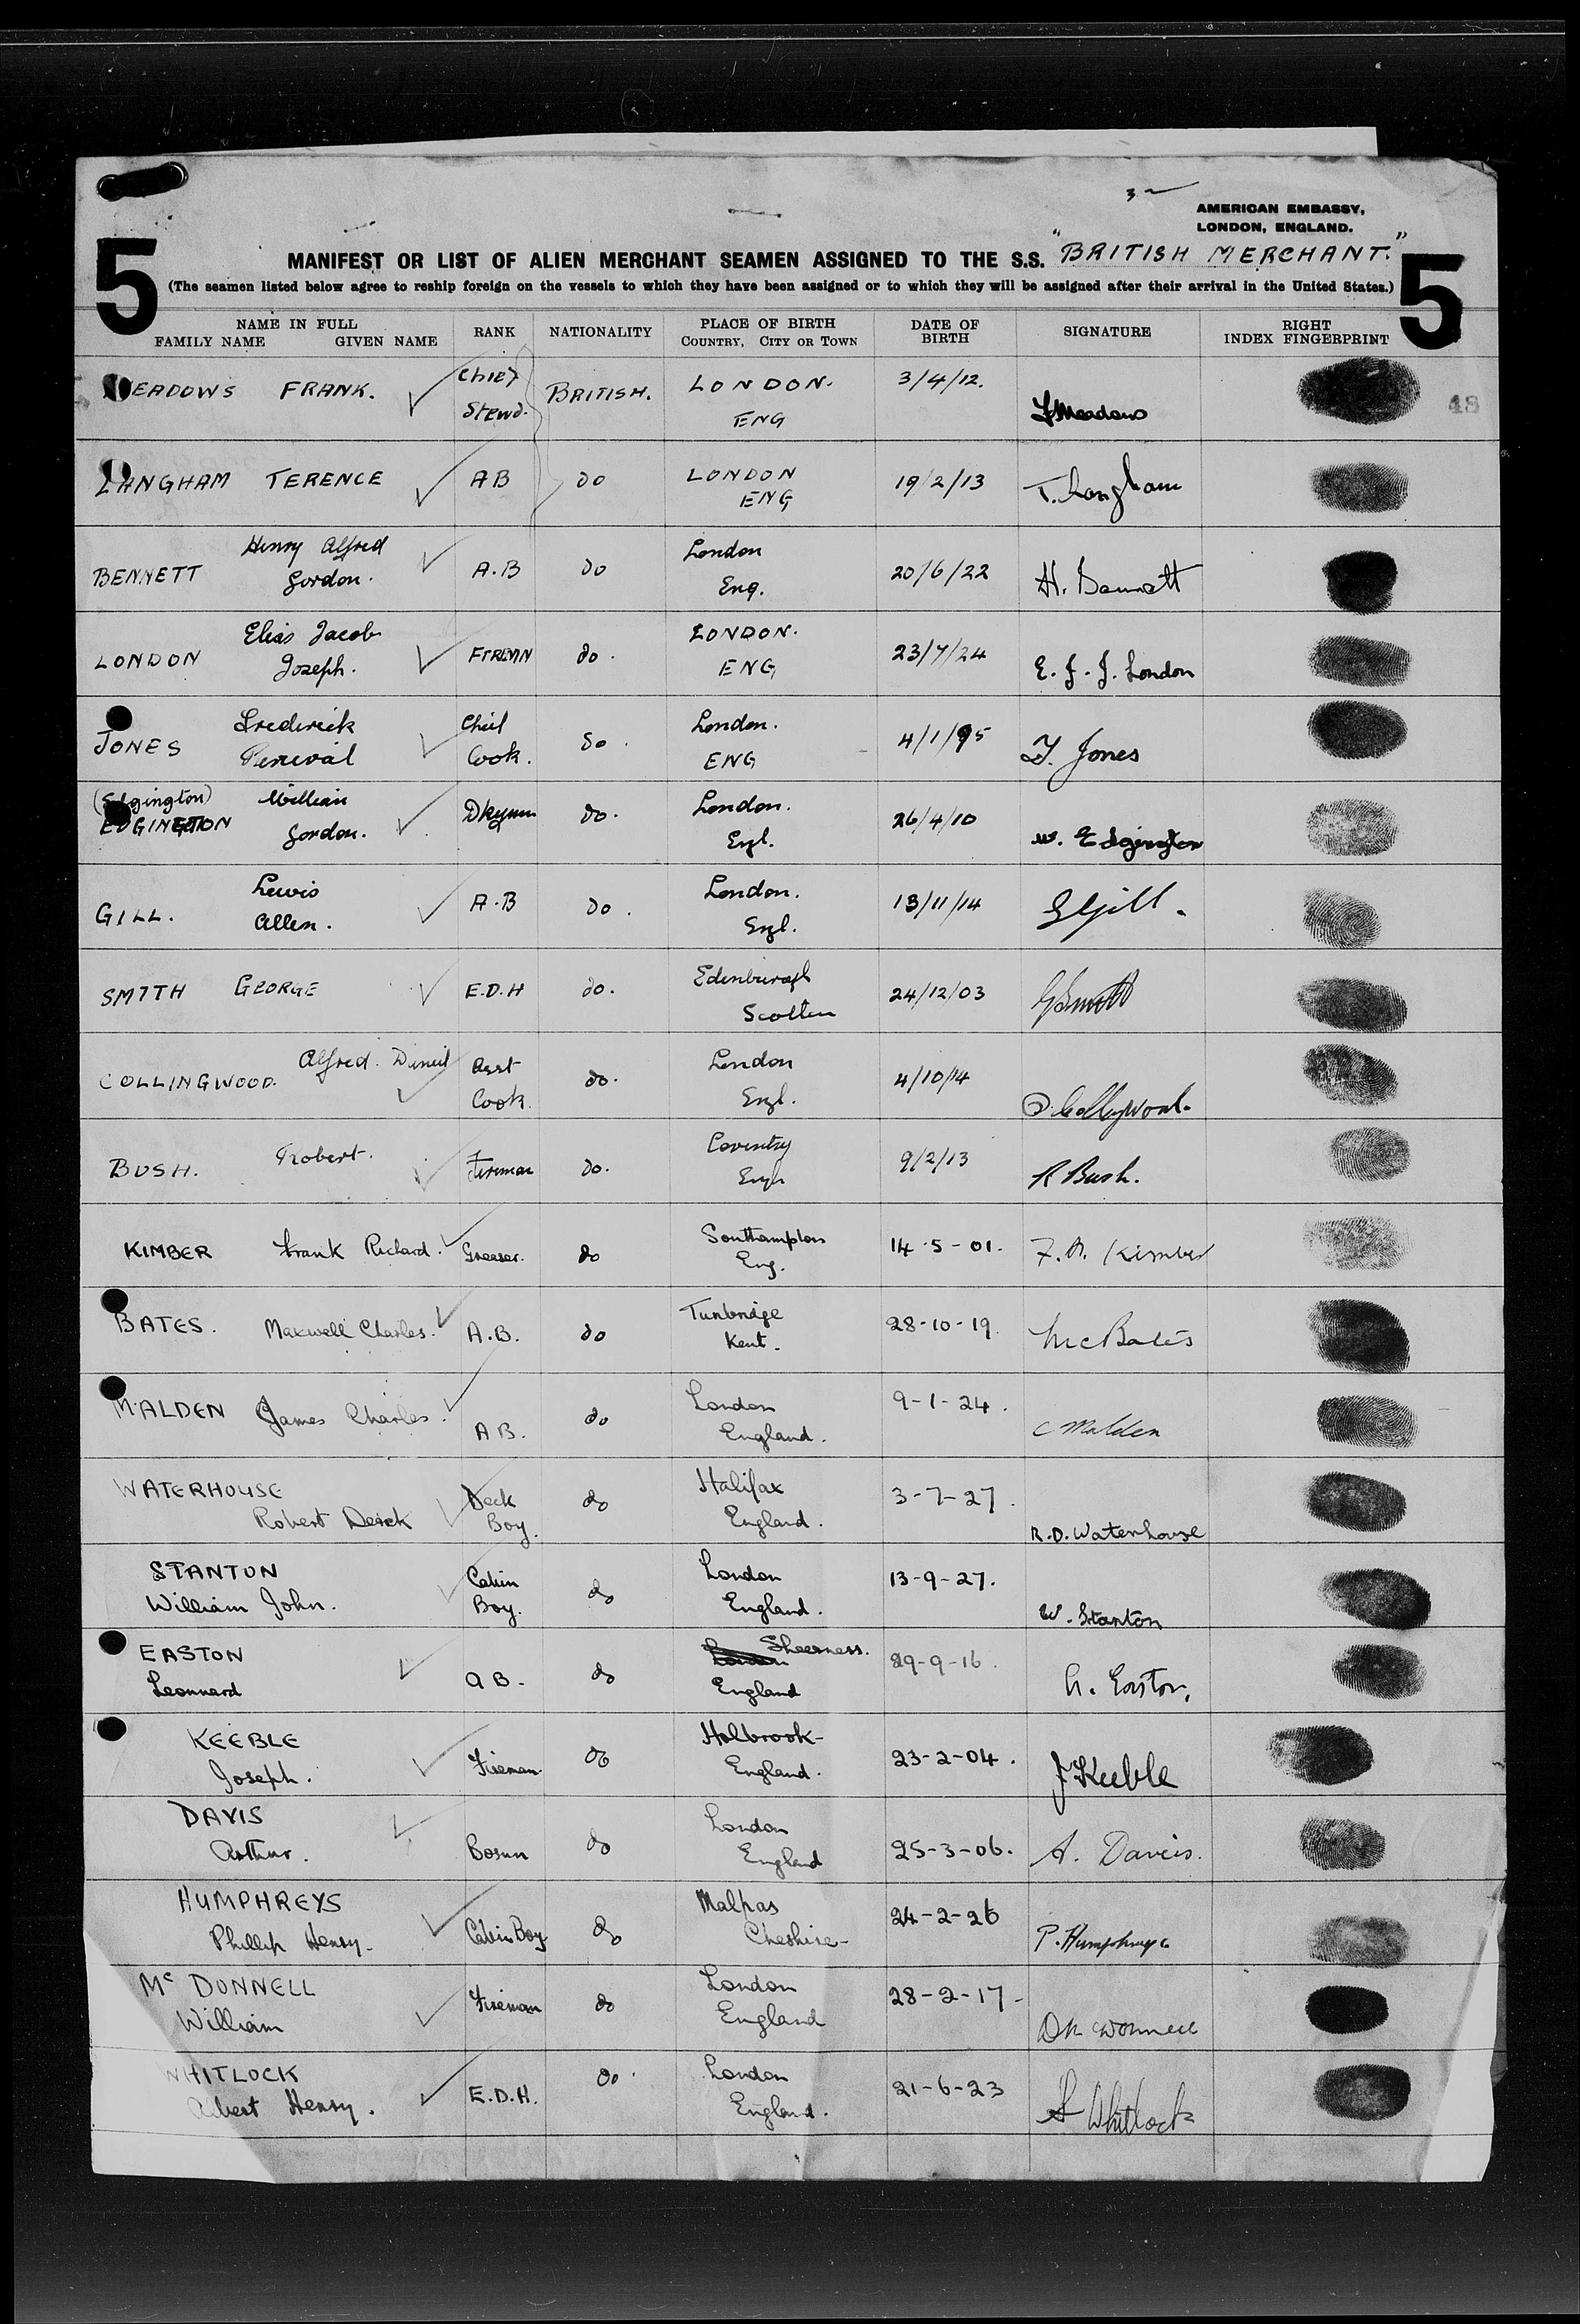 3
AMERICAN EMBASSY,
LONDON, ENGLAND.
5 MANIFEST OR LIST OF ALIEN MERCHANT SEAMEN ASSIGNED TO THE S.S. "BRITISH MERCHANT." 5
(The seamen listed below agree to reship foreign on the vessels to which they have been assigned or to which they will be assigned after their arrival in the United States.)
NAME IN FULL
FAMILY NAME GIVEN NAME RANK NATIONALITY PLACE OF BIRTH
COUNTRY, CITY OR TOWN DATE OF
BIRTH SIGNATURE RIGHT
INDEX FINGERPRINT
MEADOWS FRANK. Chief
Stewd. BRITISH. LONDON.
ENG 3/4/12. F Meadows 48
LANGHAM TERENCE AB do LONDON
ENG 19/2/13 T. Langham
BENNETT Henry Alfred
Gordon. A.B do London
Eng. 20/6/22 H. Bennett
LONDON Elias Jacob
Joseph. FIREMN do. LONDON.
ENG 23/7/24 E. J. J. London
JONES Frederick
Percival Chief
Cook. do. London.
ENG 4/1/95 F. Jones
(Edgington)
EDGINGTON William
Gordon. Dkymn do. London.
Engl. 26/4/10 W. Edgington
GILL. Lewis
Allen. A.B do. London.
Engl. 13/11/14 Gill.
SMITH GEORGE E.D.H do. Edinburgh
24/12/03 G Smith
COLLINGWOOD. Alfred. Asst
Cook. do. London
Engl. 4/10/14
BUSH. Robert. Fireman do. Coventry
Engl 9/2/13 R Bush.
KIMBER Frank Richard. Greaser. do Southampton
Eng. 14-5-01. F. R. Kimber
BATES. Maxwell Charles. A.B. do Tunbridge
Kent. 28-10-19. M C Bates
MALDEN James Charles. AB. do London
England. 9-1-24. C Malden
WATERHOUSE
Robert Derek Deck
Boy. do Halifax
England. 3-7-27. R.D. Waterhouse
STANTON
William John. Cabin
Boy. do London
England. 13-9-27. W. Stanton
EASTON
Leonnard AB. do London Sheerness.
England 29-9-16. L. Easton.
KEEBLE
Joseph. Fireman do Holbrook
England. 23-2-04. J Keeble
DAVIS
Arthur. Bosun do London
England 25-3-06. A. Davis.
HUMPHREYS
Phillip Henry. Cabin Boy do Malpas
Cheshire 24-2-26 P. Humphreys
Mc DONNELL
William Fireman do London
England 28-2-17
WHITLOCK
Albert Henry. E.D.H. do. London
England. 21-6-23 A Whitlock